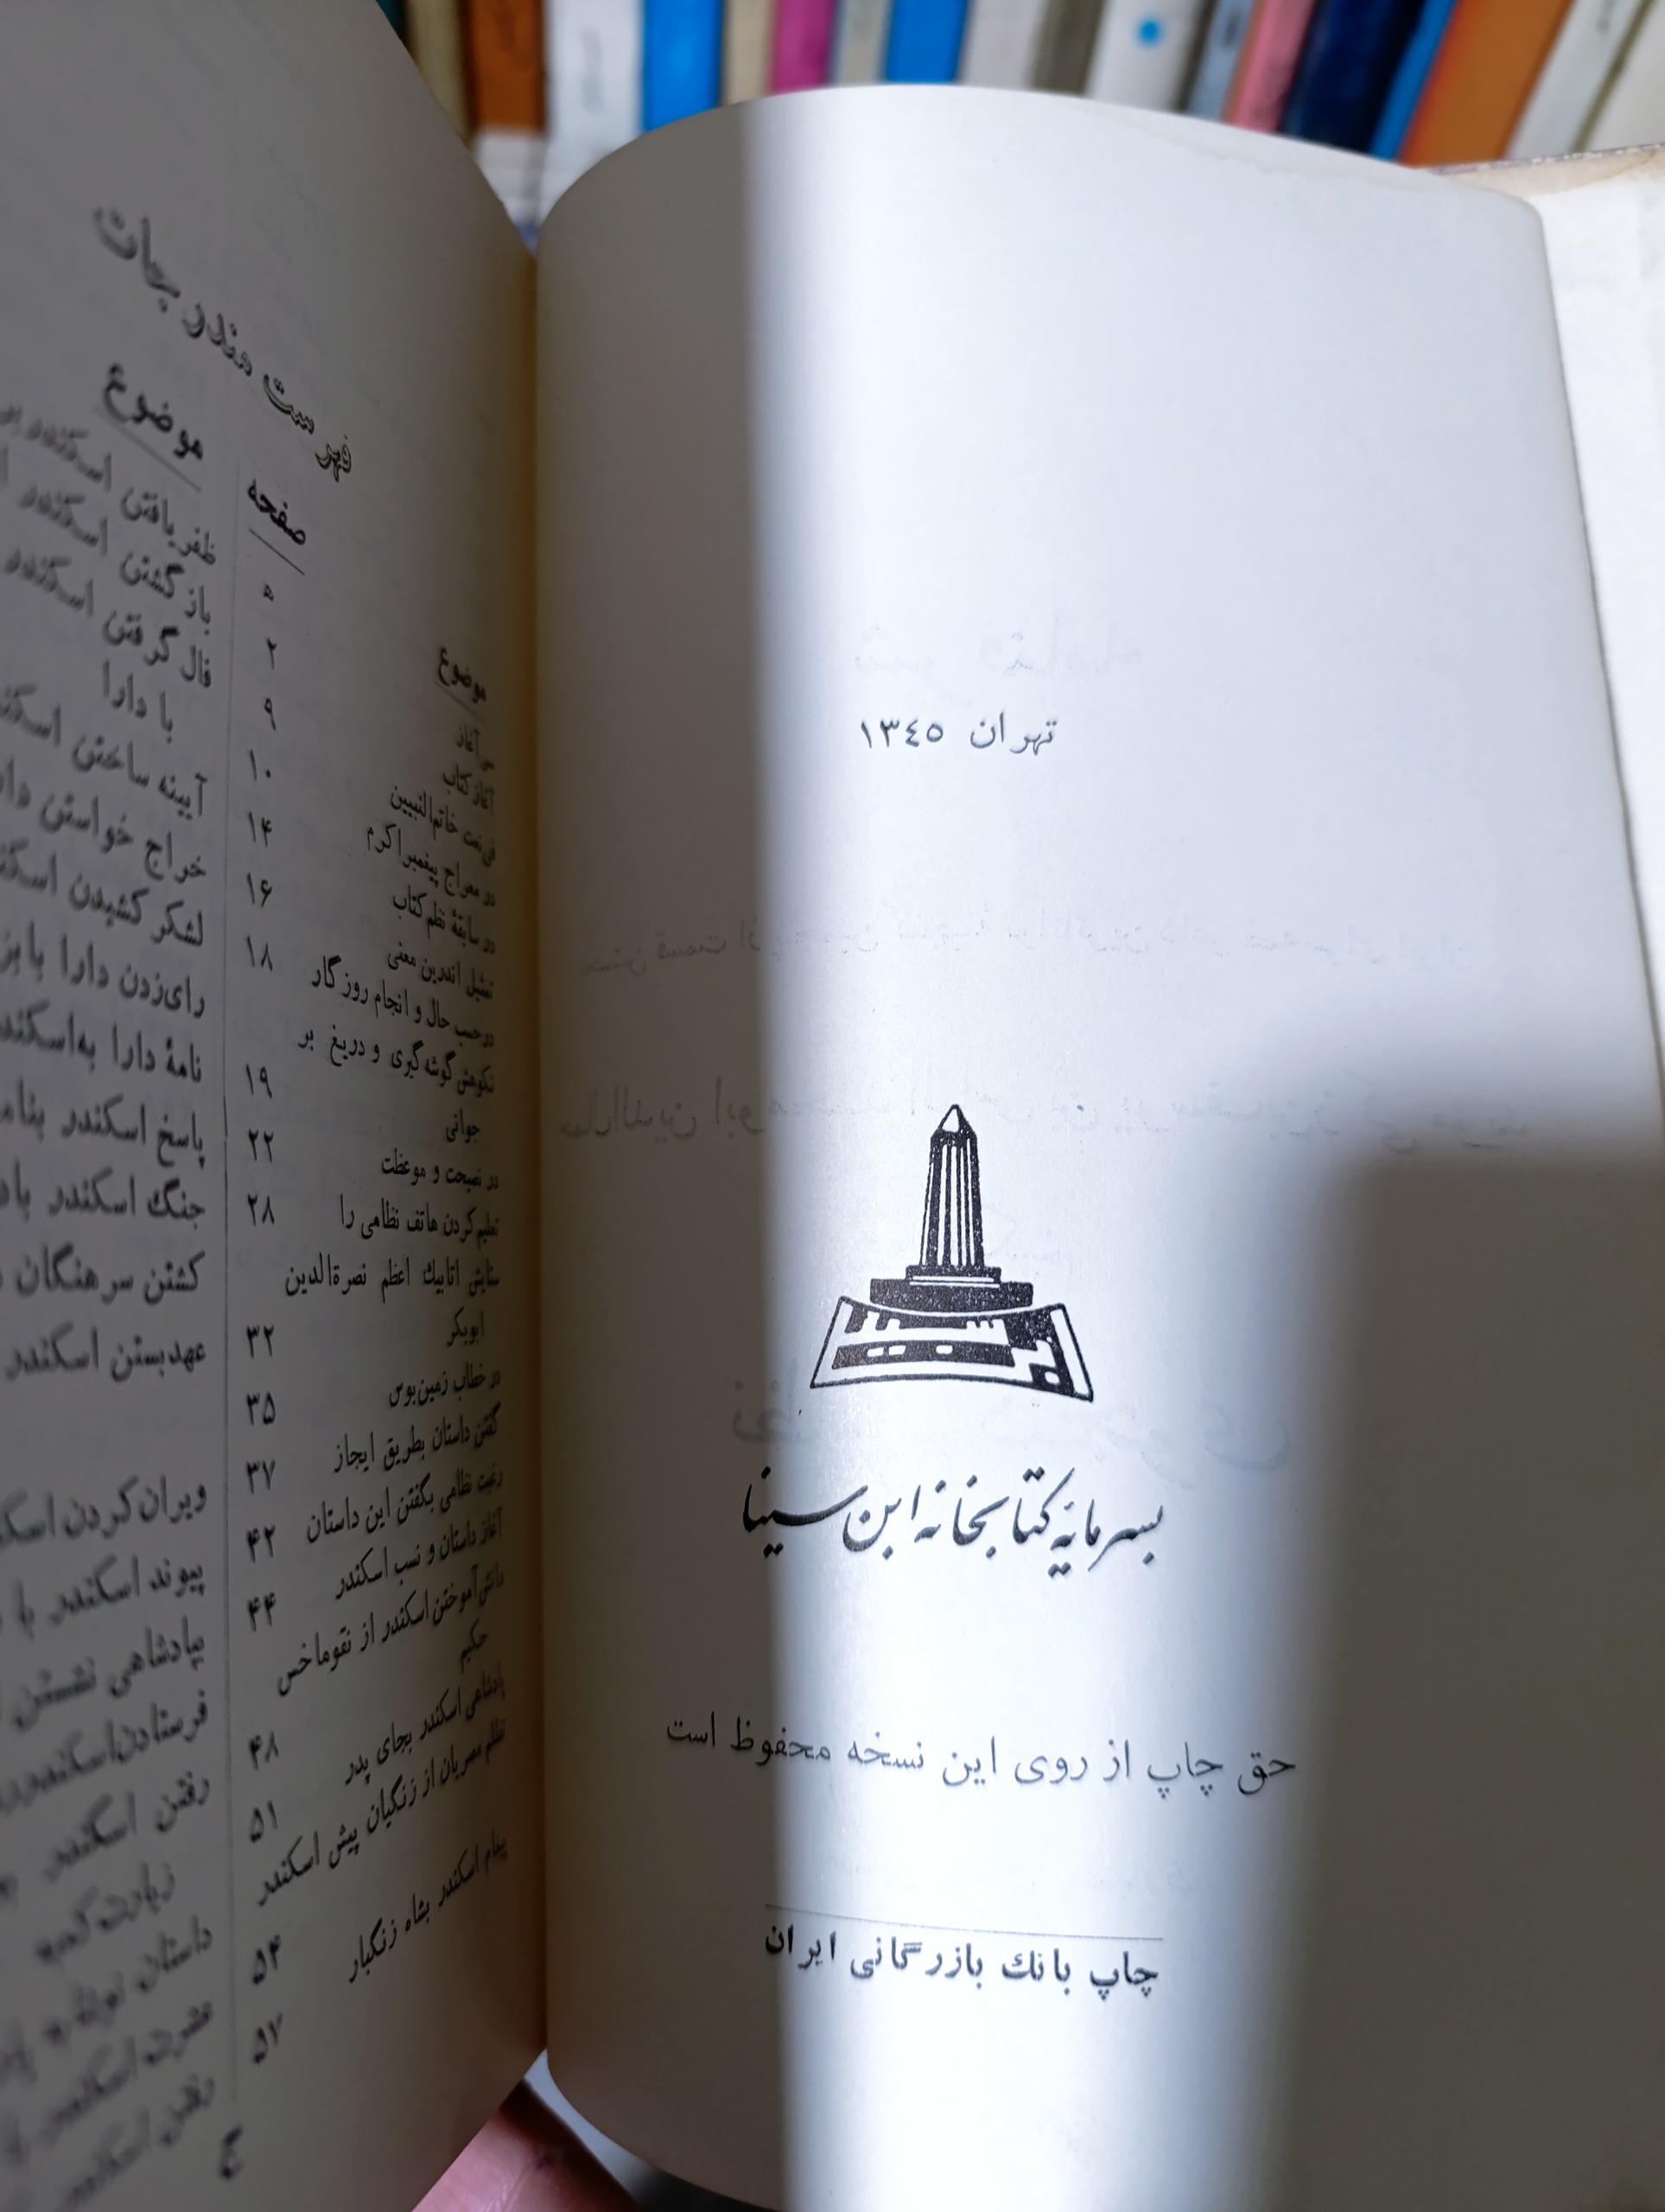 تهران ۱۳٤٥
بسرمایهٔ کتابخانه ابن سینا
حق چاپ از روی این نسخه محفوظ است
چاپ بانك بازرگانی ایران
فهرست مندرجات
موضوع صفحه
آغاز
آغاز کتاب ۲
فی نعت خاتم‌النبیین ۹
در معراج پیغمبر اکرم ۱۰
در سابقهٔ نظم کتاب ۱۴
تمثیل اندرین معنی ۱۶
در حسب حال و انجام روزگار ۱۸
نکوهش گوشه‌گیری و دریغ بر
جوانی ۱۹
در نصیحت و موعظت ۲۲
تعلیم کردن هاتف نظامی را ۲۸
ستایش اتابیك اعظم نصرةالدین
ابوبکر ۳۲
در خطاب زمین‌بوس ۳۵
گفتن داستان بطریق ایجاز ۳۷
رغبت نظامی بگفتن این داستان ۴۲
آغاز داستان و نسب اسکندر ۴۴
دانش‌آموختن اسکندر از نقوماخس
حکیم ۴۸
پادشاهی اسکندر بجای پدر ۵۱
تظلم مصریان از زنگیان پیش اسکندر ۵۴
پیغام اسکندر بشاه زنگبار ۵۷
موضوع
ظفر یافتن اسکندر بر
باز گشتن اسکندر
فال گرفتن اسکندر
با دارا
آیینه ساختن
خراج خواستن
لشکر کشیدن
رای‌زدن دارا
نامهٔ دارا
پاسخ اسکندر
جنگ اسکندر
کشتن سرهنگان
عهد بستن اسکندر
ویران کردن
پیوند اسکندر
بپادشاهی نشستن
فرستادن
رفتن اسکندر
زیارت کعبه
داستان نوشابه
عشرت اسکندر
رفتن
ج